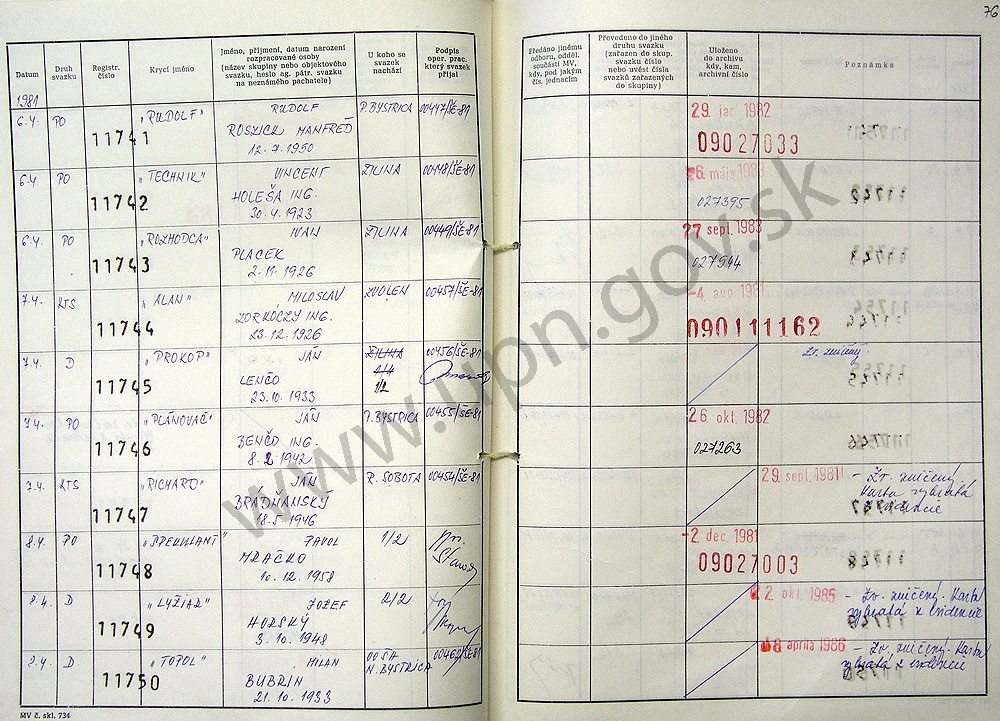 76
Datum
Druh svazku
Registr. číslo
Krycí jméno
Jméno, příjmení, datum narození
rozpracované osoby
(název skupiny nebo objektového
svazku, heslo ag. pátr. svazku
na neznámého pachatele)
U koho se
svazek
nachází
Podpis
oper. prac.
který svazek
přijal
Předáno jinému
odboru, odděl.
součásti MV,
kdy, pod jakým
čís. jednacím
Převedeno do jiného
druhu svazku
(zařazen do skup.
svazku číslo
nebo uvést čísla
svazků zařazených
do skupiny)
Uloženo
do archivu
kdy, kam,
archivní číslo
Poznámka
1981
6.4. PO 11741 „RUDOLF" RUDOLF P. BYSTRICA 00447/ŠE-81 29. jar 1982
ROSZICK MANFRED 09027033
12.7.1950
6.4. PO 11742 „TECHNIK" VINCENT ŽILINA 00448/ŠE-81 6. mája 1983
HOLEŠA ING. 027395
30.4.1923
6.4. PO 11743 „ROZHODCA" IVAN ŽILINA 00449/ŠE-81 27 sept. 1983
PLACEK 027544
2.11.1926
7.4. KTS 11744 „ALAN" MILOSLAV ZVOLEN 00457/ŠE-81 -4. aug 1981
ZORKÓCZY ING. 090111162
23.12.1926
7.4. D 11745 „PROKOP" JÁN ŽILINA 00456/ŠE-81 Zv. zničený.
LENČO 1/2
23.10.1933
7.4. PO 11746 „PLÁNOVAČ" JÁN P. BYSTRICA 00455/ŠE-81 26. okt. 1982
BENČO ING. 027263
8.2.1942
7.4. KTS 11747 „RICHARD" JÁN R. SOBOTA 00454/ŠE-81 29. sept. 1981 - Zv. zničený
BRADŇANSKÝ Karta vybratá
18.5.1946 z evidencie
8.4. PO 11748 „ŠPEKULANT" PAVOL 1/2 -2. dec. 1981
MRAČKO 09027003
10.12.1958
8.4. D 11749 „LYŽIAR" JOZEF 2/2 2. okt. 1985 - Zv. zničený. Karta
HORSKÝ vybratá z evidencie
3.10.1948
8.4. D 11750 „TOPOĽ" MILAN OO ŠA 00462/ŠE-81 18 apríla 1986 - Zv. zničený. Karta
BUBRIN N. BYSTRICA vybratá z evidencie
21.10.1933
MV č. skl. 734
www.upn.gov.sk